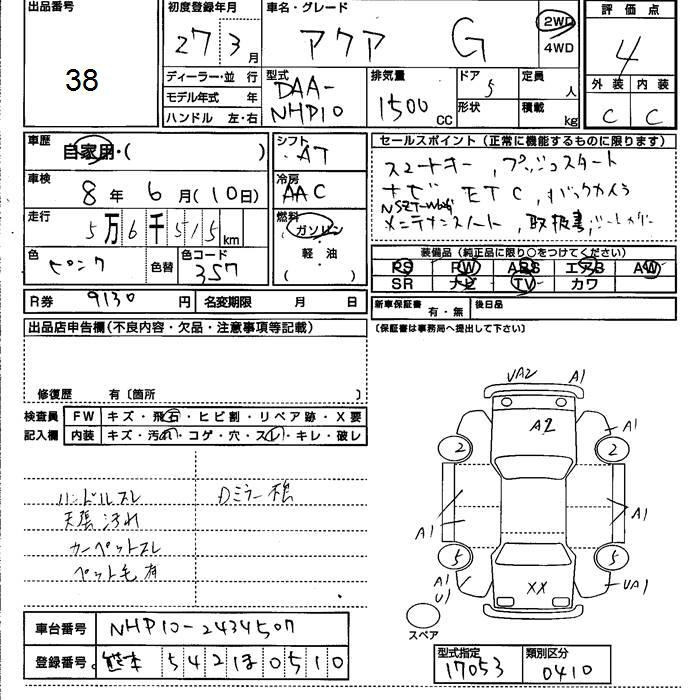 出品番号
38
初度登録年月
27 3月
車名・グレード
アクア G
2WD
4WD
評価点
4
外装 内装
C C
ディーラー・並行
モデル年式 年
ハンドル 左・右
型式
DAA-
NHP10
排気量
1500 CC
ドア
5
形状
定員
人
積載
kg
車歴
自家用・( )
車検
8年 6月(10日)
走行
5万6千515km
色
ピンク
色替
色コード
3S7
シフト
AT
冷房
AAC
燃料
ガソリン
軽油
( )
セールスポイント(正常に機能するものに限ります)
スマートキー, プッシュスタート
ナビ ETC, バックカメラ
メンテナンスノート, 取扱書,
装備品(純正品に限り○をつけてください)
PS PW ABS エアB AW
SR ナビ TV カワ
R券 9130円 名変期限 月 日
新車保証書 有・無 後日品
(保証書は事務局へ提出して下さい)
出品店申告欄(不良内容・欠品・注意事項等記載)
修復歴 有〔箇所 〕
検査員 FW キズ・飛石・ヒビ割・リペア跡・X要
記入欄 内装 キズ・汚れ・コゲ・穴・スレ・キレ・破レ
ハンドルスレ
天張汚れ
カーペットスレ
ペット毛有
Dミラー
UA2 A1
A2 A1
2 2
A1 A1
5 5
A1
U1
XX
UA1
スペア
車台番号 NHP10-2434507
登録番号 熊本 542 ほ 0510
型式指定
17053
類別区分
0410